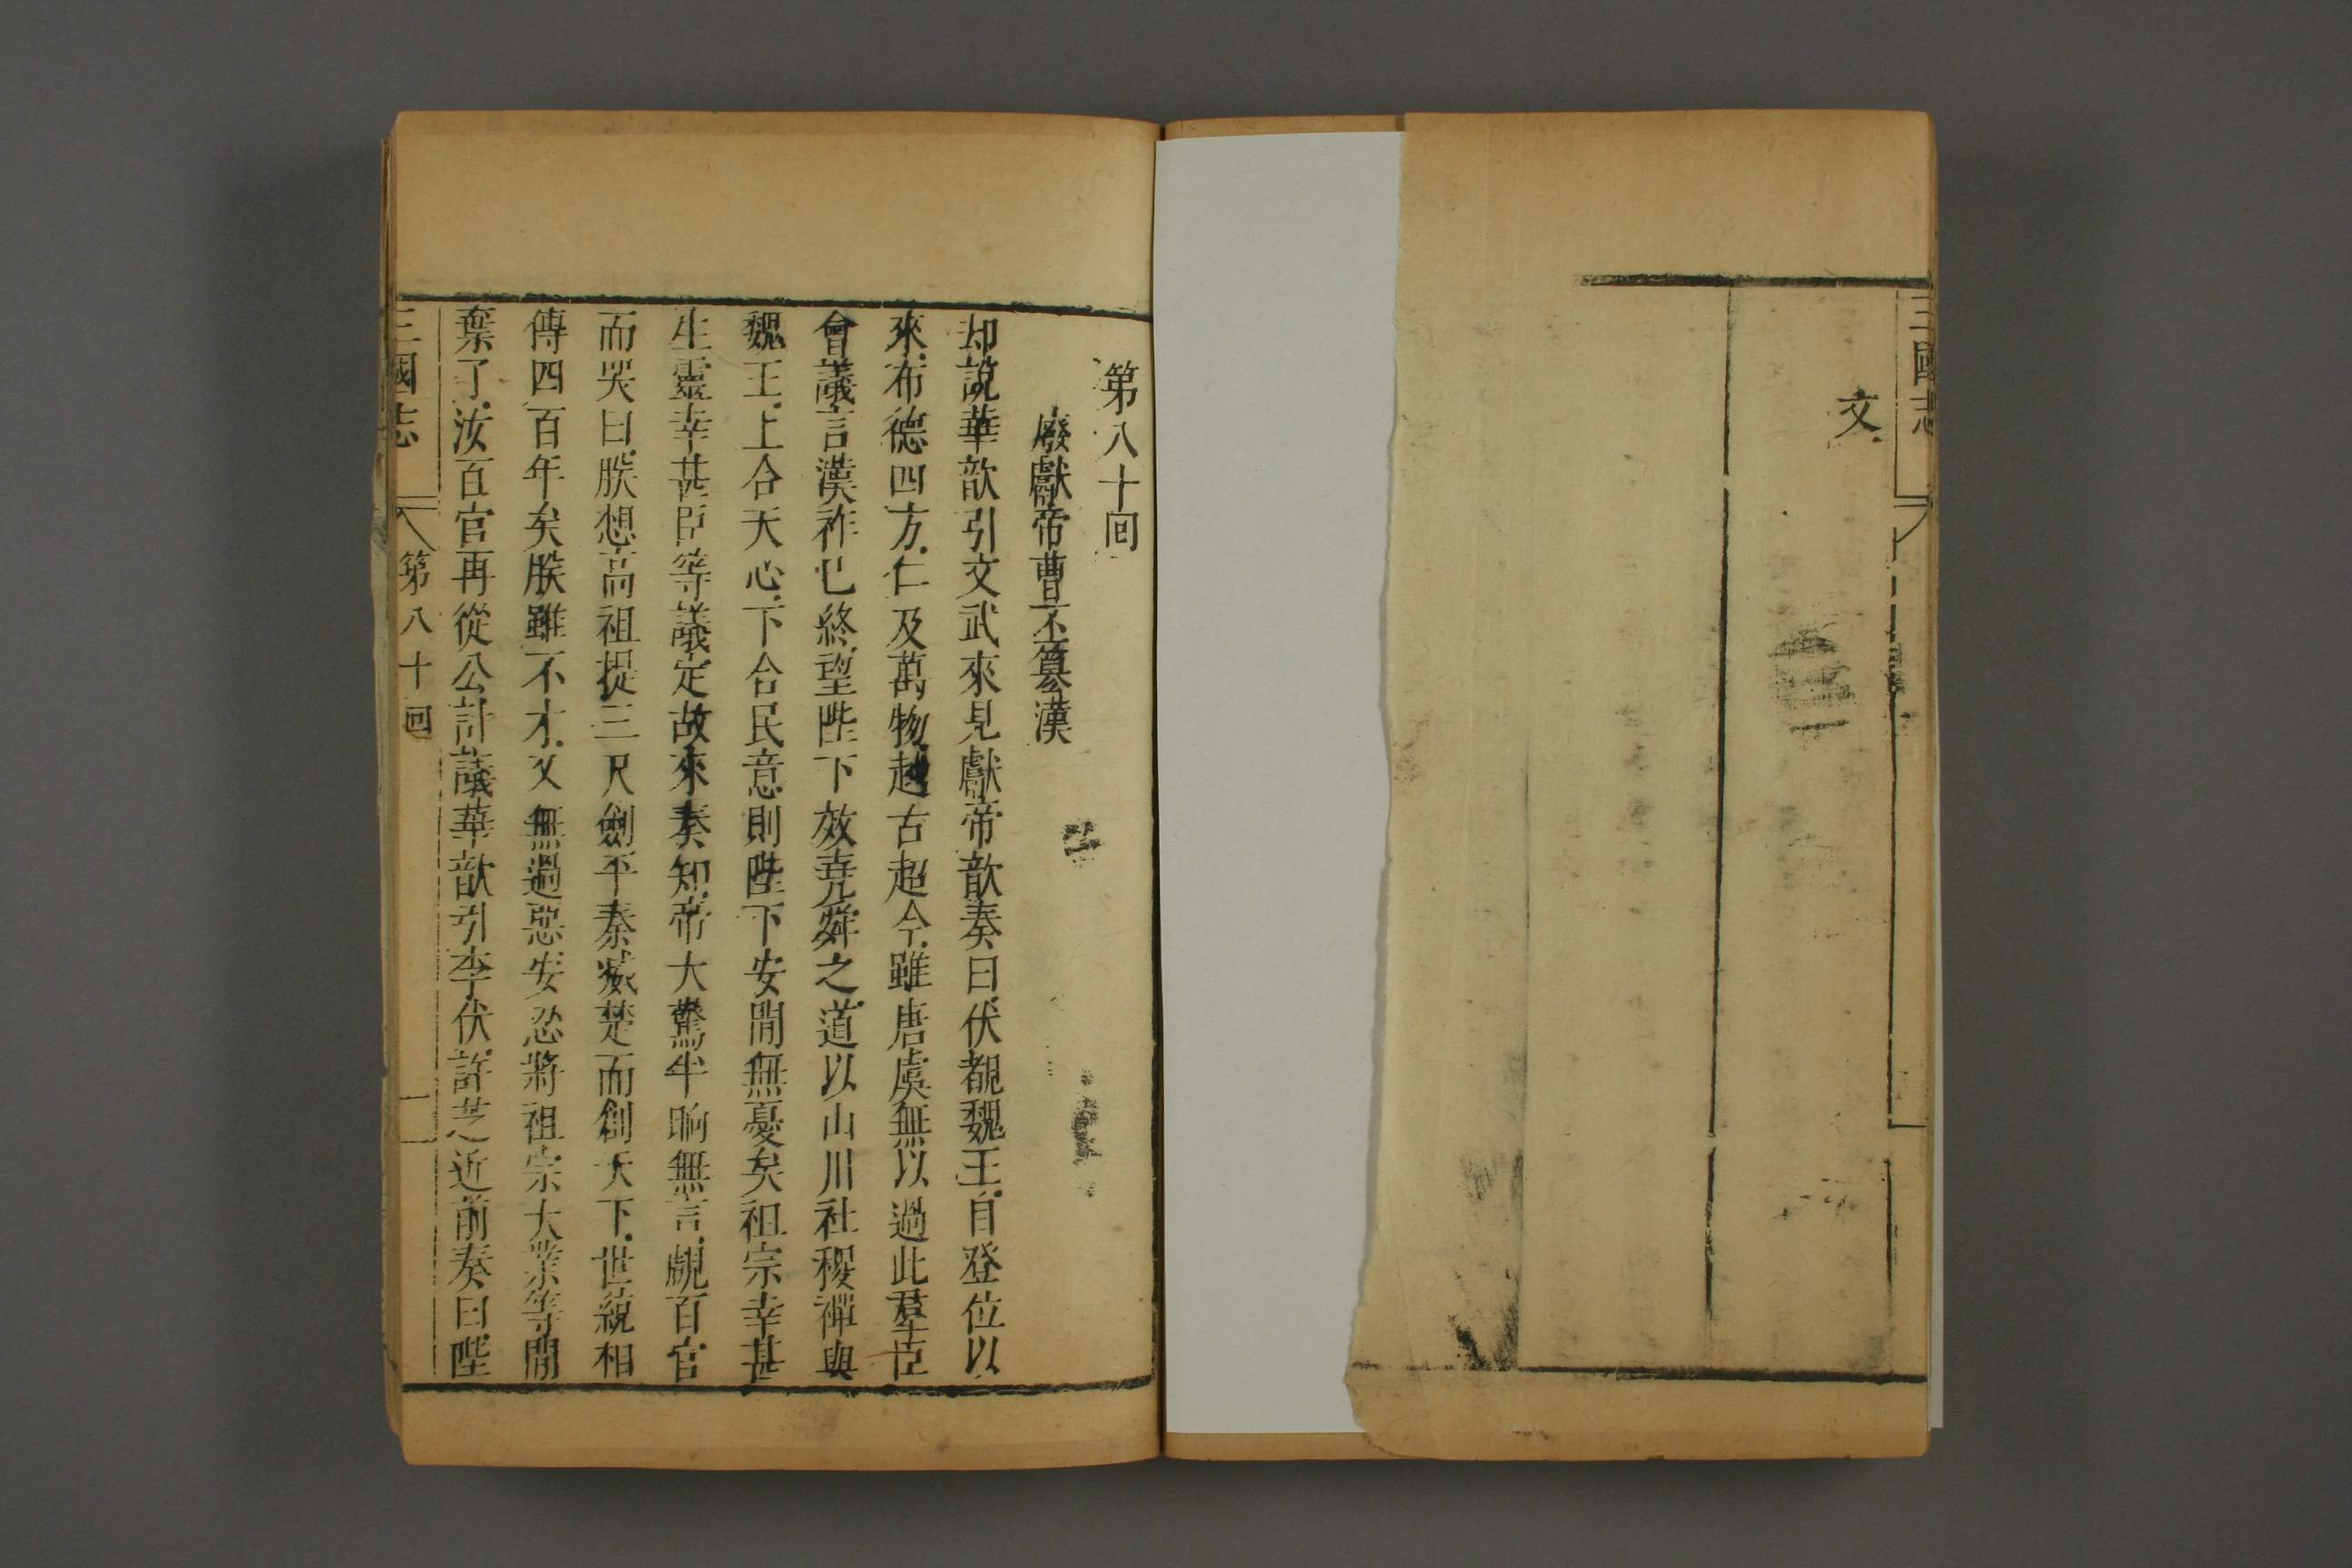 三國志
文
第八十回
廢獻帝曹丕篡漢
却說華歆引文武來見獻帝歆奏曰伏覩魏王自登位以
來布德四方仁及萬物越古超今雖唐虞無以過此羣臣
會議言漢祚巳終望陛下效堯舜之道以山川社稷禪與
魏王上合天心下合民意則陛下安閒無憂矣祖宗幸甚
生靈幸甚臣等議定故來奏知帝大驚半晌無言覷百官
而哭曰朕想高祖提三尺劍平秦滅楚而創天下世統相
傳四百年矣朕雖不才又無過惡安忍將祖宗大業等閒
棄了汝百官再從公計議華歆引李伏許芝近前奏曰陛
三國志 第八十回 一